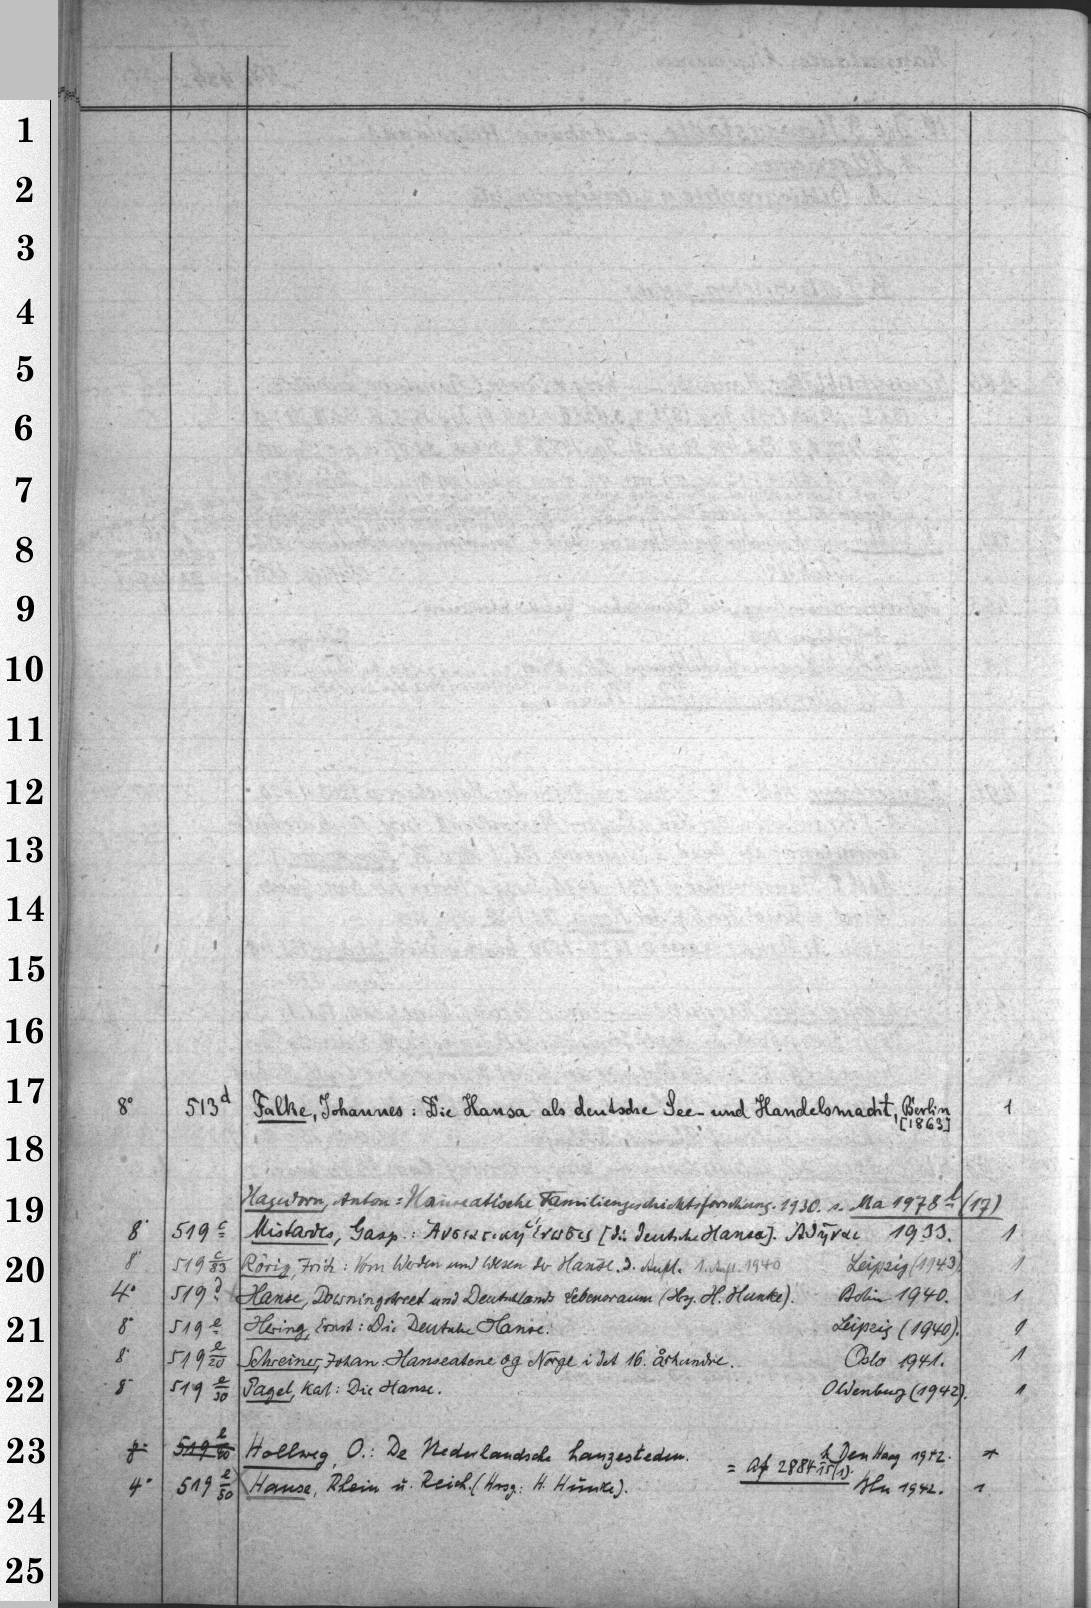 1
2
3
4
5
6
7
8
9
10
11
12
13
14
15
16
17
8° 513 d Falke, Johannes: Die Hansa als deutsche See- und Handelsmacht, Berlin 1
[1863]
18
19
Hagedorn, Anton: Hanseatische Familiengeschichtsforschung. 1930. s. Ma 1978 (17)
8° 519 c Mistardes, Gasp.: [die deutsche Hansa]. 1933. 1
20
8° 519 c/85 Rörig, Fritz: Vom Werden und Wesen der Hanse. 3. Aufl. 1. Aufl. 1940 Leipzig (1943). 1
4° 519 d Hanse, Downingstreet und Deutschlands Lebensraum (Hrg. H. Hunke). Berlin 1940. 1
21
8° 519 e Hering, Ernst: Die Deutsche Hanse. Leipzig (1940). 1
8° 519 e/20 Schreiner, Johan: Hanseatene og Norge i det 16. århundre. Oslo 1941. 1
22
8° 519 e/30 Pagel, Karl: Die Hanse. Oldenburg (1942). 1
23
8° 519 Hollweg, O.: De Nederlandsche hanzesteden. Den Haag 1942.
= Af 2884
4° 519 e/50 Hanse, Rhein u. Reich. (Hrsg: H. Hunke). Bln 1942. 1
24
25